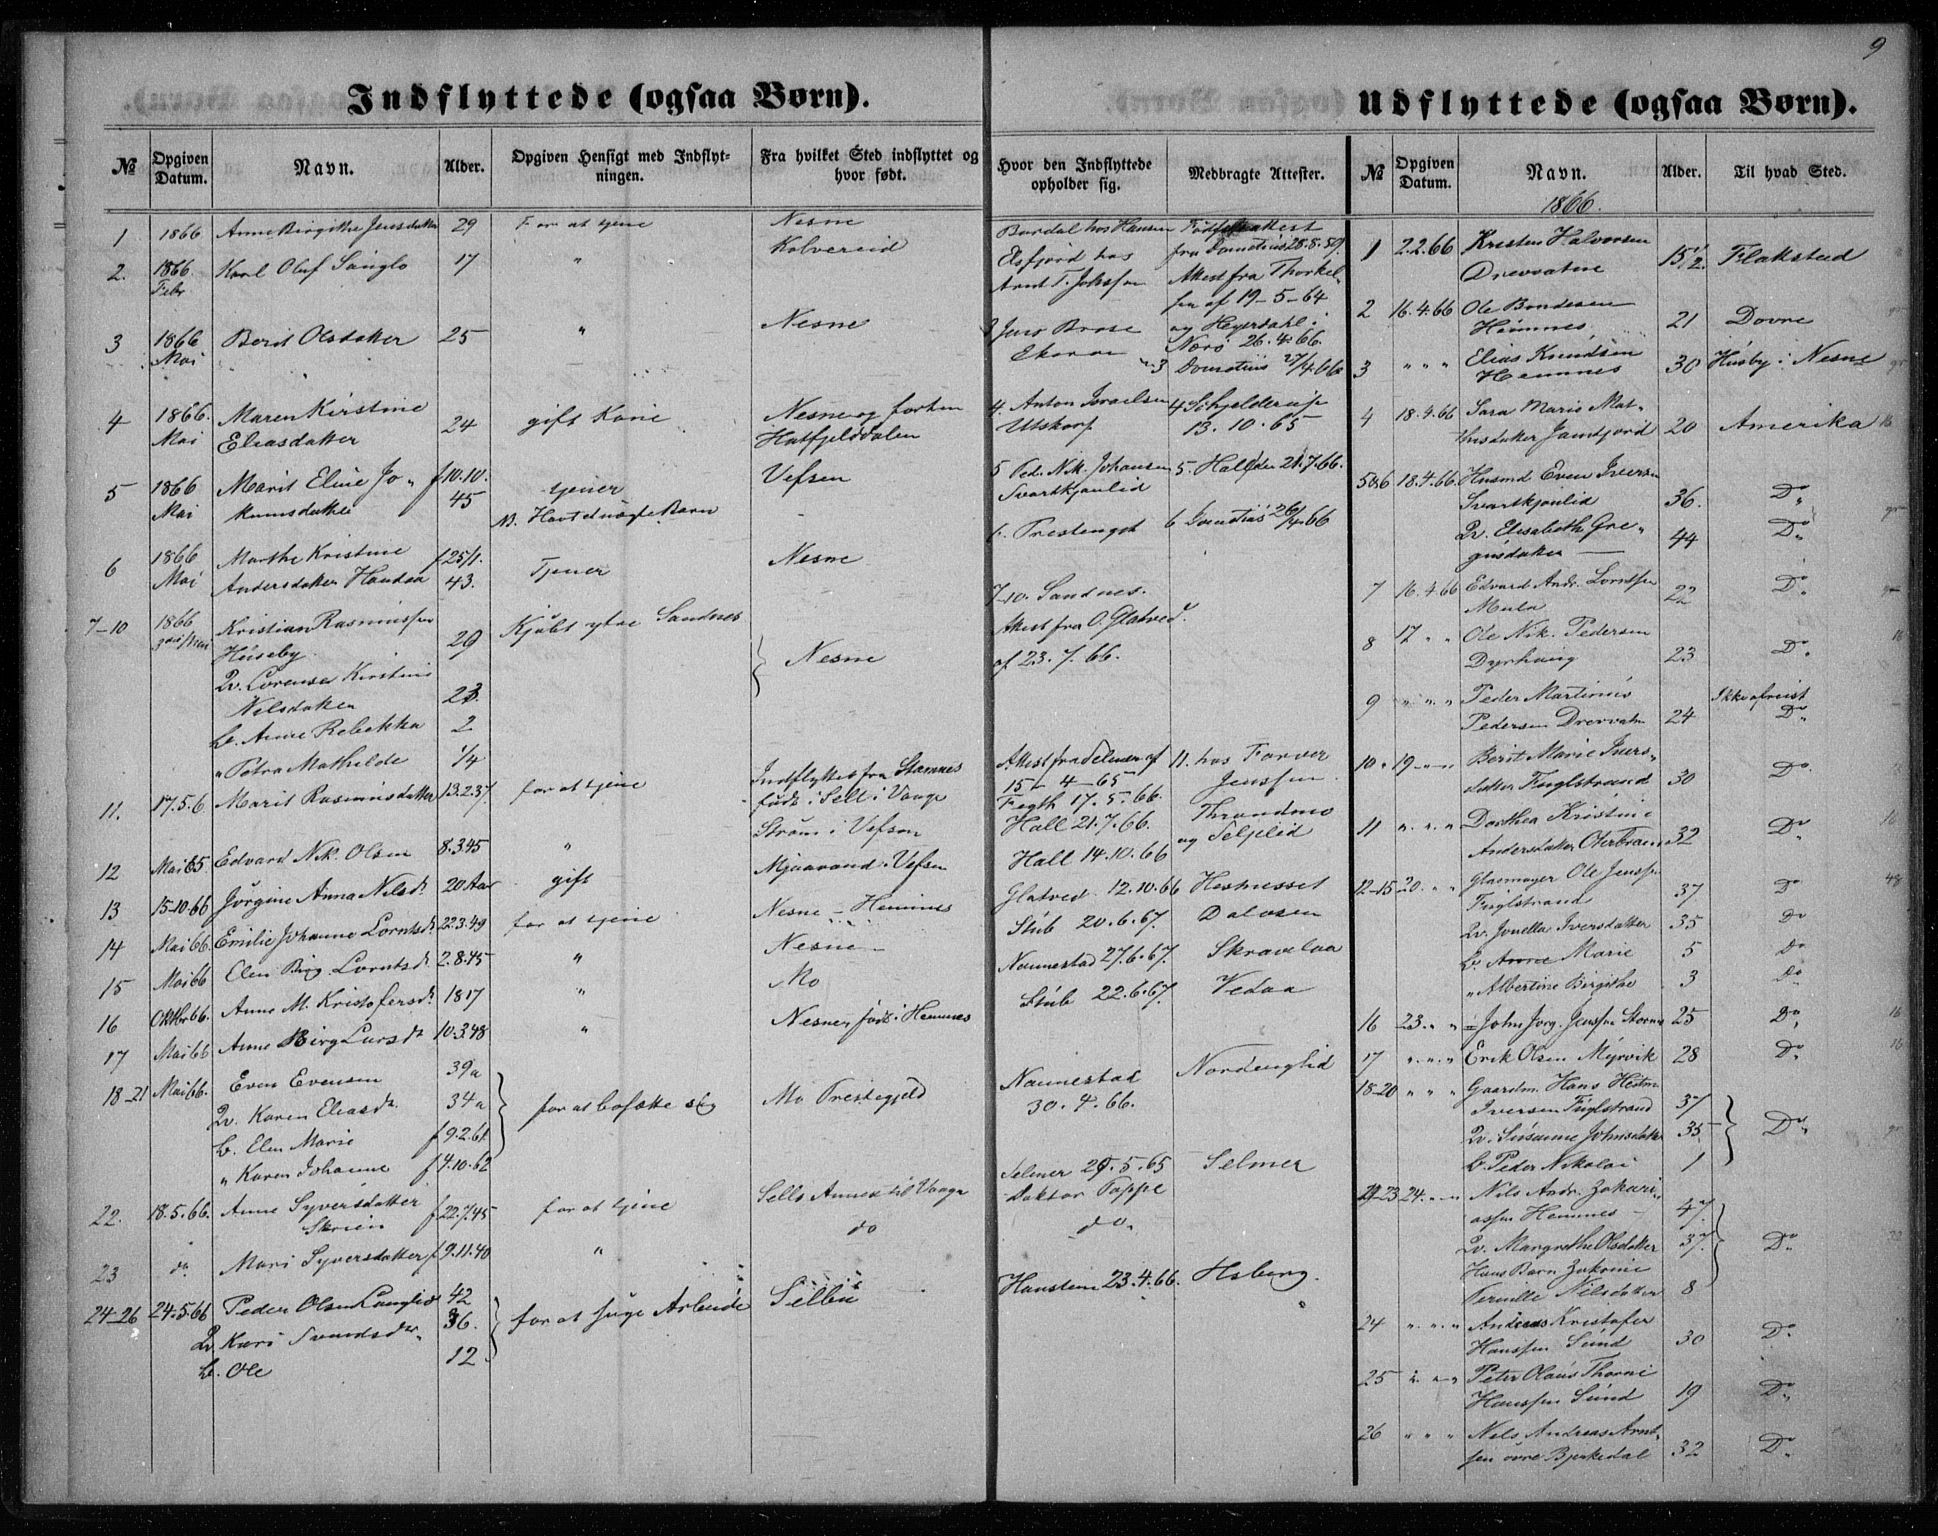 9
Indflyttede (ogsaa Børn).
№ Opgiven Datum. Navn. Alder. Opgiven Hensigt med Indflyt-ningen. Fra hvilket Sted indflyttet og hvor født. Hvor den Indflyttede opholder sig. Medbragte Attester.
1 1866 Anne Birgithe Jensdatter 29 For at tjene Nesne Bardal hos Hansen Fødselsattest
fra 28.8.59.
2. 1866 Febr Karl Oluf 17 " Kolvereid Elsfjord hos
Attest fra Thorkel-
sen af 19-5-64
og Heyerdahl i
Nærö 26.4.66.
3 1866 Mai Berit Olsdatter 25 " Nesne 3 Jens
3 27/4.66
4 1866. Mai Maren Kirstine
Eliasdatter 24 gift Kone Nesne og forhen
Hatfjelddalen 4. Anton Israelsen
Utskarp 4 Schjelderup
13.10.65
5 1866 Mai Marit Eline Jo-
f 10.10.
45 tjener Vefsen 5 Ped. Nik. Johansen
Svartkjønlid 5. Hall den 21.7.66.
N. Havt et uægte Barn
6 1866 Mai Marthe Kristine
Andersdatter f 25/1.
43. Tjener Nesne 6. 6 26/4.66
7-10 1866 Mai Kristian Rasmussen
Huseby. 29 Kjöbt ytre Sandnes Nesne 7-10. Sandnes.
Attest fra O. Glatved
af 23.7.66.
Qv. Lorense Kirstine
Nilsdatter 23.
b. Anne Rebekka 2
" Petra Mathilde 1/4
11. 17.5.6 Marit Rasmusdatter 13.2.37. for at tjene Indflyttet fra Stamnes
født i Sell i Vaage Attest fra Selmer af
15-4-65
Fogth 17.5.66. 11. hos Farver
Jenssen.
12 Mai 65 Edvard Nik. Olsen 8.3.45 " Strøm i Vefsen Hall 21.7.66. Thrandmo
og Seljelid
13 15-10-66 Jørgine Anna Nilsd. 20 Aar gift Mjaavand i Vefsen Hall 14.10.66
14 Mai 66. Emilie Johanne Lorntsd. 22.3.49 for at tjene Nesne - Hemnes Glatved 12.10.66 Hestnesset
15 Mai 66 Elen Birg Lorntsd. 2.8.45 " Nesne Stub 20.6.67. Dalosen
16 Oktbr 66. Anne M. Kristofersd. 1817 " Mo Nannestad 27.6.67. Skravelaa
17 Mai 66 Anne Birg Larsd. 10.3.48 " Nesne, født i Hemnes Stub 22.6.67. Vedaa
18-21 Mai 66. Even Evensen 39 a for at bosætte sig Mo Prestegjeld Nannestad
30.4.66. Nordenglid
Qv. Karen Eliasd. 34 a
b. Elen Marie f 9.2.61
" Karen Johanne f 4.10.62
22. 18.5.66. Anne Syversdatter
Skrien f 22.7.45 for at tjene Sells Annex til Vaage Selmer 29.5.65 Selmer
Doktor Pappe
23 do Mari Syversdatter f 9.11.40 " do do.
24-26 24.5.66 Peder Olsen Langlid 42 for at søge Arbeide Selbu Hanstein 23.4.66. Hsberg.
Qv. Kari 36.
b. Ole 12
Udflyttede (ogsaa Børn).
№ Opgiven Datum. Navn. Alder. Til hvad Sted.
1866.
1 2.2.66 Kristen Halvorsen
Drevvatne 15 1/2. Flakstad
2 16.4.66 Ole Bendesen
Hemnes 21 Dovre
3 " " " Elias Knudsen
Hemnes 30 Husby i Nesne
4 18.4.66 Sara Marie Mat-
thisdatter 20 Amerika
5 & 6 18.4.66. Husmd Even Iversen
Svartkjønlid 36. Do
Qv. Elisabeth Gre-
gusdatter — 44 Do
7 16.4.66 Edvard Andr. Lorntsen
Mula 22 Do
8 17 " " Ole Nik. Pedersen
Dyrhaug 23 Do
9 " " " Peder Martinus
Pedersen Drevvatn 24 Ikke afreist
Do
10 19 " " Berit Marie Ivers-
datter Fuglstrand 30 Do
11 " " " Dorthea Kristine
Andersdatter 32 Do
12-15 20 " " Ole Jenssen
Fuglstrand 37 Do
Qv. Jonella Iversdatter 35 Do
b. Anne Marie 5 Do
" Albertine Birgithe 3 Do
16 23 " " John Jørg. Jenssen 25 Do
17 " " " Erik Olsen Myrvik 28 Do
18-20 " " Gaardm. Hans
Iversen Fuglstrand 37 Do
Qv. Susanne Johnsdatter 35
b. Peder Nikolai 1
21-23 24 " " Nils Andr. Zakari-
assen Hemnes 47 Do
Qv. Margrethe Olsdatter 37.
Hans Barn
Nilsdatter 8
24 " " " Andreas Kristofer
Hanssen Sund 30 Do
25 " " " Peter Olaus
Hanssen Sund 19 Do
26 " " " Nils Andreas Arnt-
sen övre Bjerkedal 32 Do